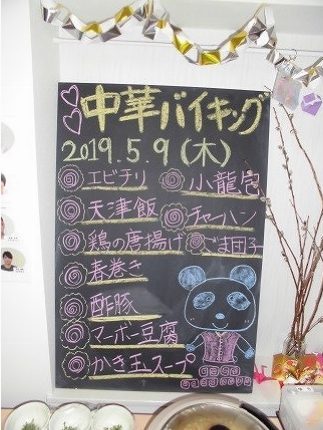 中華バイキング
2019.5.9(木)
エビチリ 小龍包
天津飯 チャーハン
鶏の唐揚げ ごま団子
春巻き
酢豚
マーボー豆腐
かき玉スープ